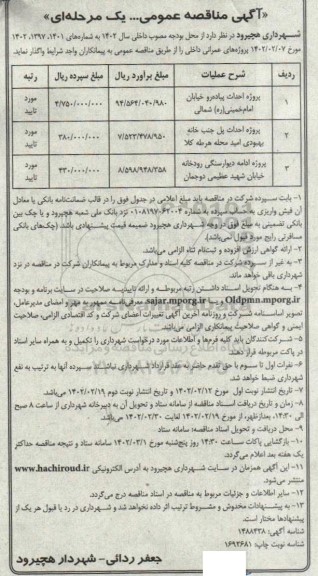 «آگهی مناقصه عمومی... یک مرحله‌ای»
شهرداری هچیرود در نظر دارد از محل بودجه مصوب داخلی سال ۱۴۰۲ به شماره‌های ۱۴۰۱، ۱۳۹۷، ۱۴۰۲
مورخ ۱۴۰۲/۰۲/۰۷ پروژه‌های عمرانی داخلی را از طریق مناقصه عمومی به پیمانکاران واجد شرایط واگذار نماید.
ردیف شرح عملیات مبلغ برآورد ریال مبلغ سپرده ریال رتبه
۱ پروژه احداث پیاده‌رو خیابان امام‌خمینی(ره) شمالی ۹۴/۵۶۴/۰۴۰/۹۸۰ ۴/۷۵۰/۰۰۰/۰۰۰ مورد تایید
۲ پروژه احداث پل جنب خانه بهبودی امید محله هرطه کلا ۷/۵۲۳/۴۷۸/۹۵۰ ۳۸۰/۰۰۰/۰۰۰ مورد تایید
۳ پروژه ادامه دیوارسنگی رودخانه خیابان شهید عظیمی دوجمان ۸/۵۹۸/۹۴۸/۳۵۸ ۴۳۰/۰۰۰/۰۰۰ مورد تایید
۱- بابت سپرده شرکت در مناقصه باید مبلغ اعلامی در جدول فوق را در قالب ضمانت‌نامه بانکی یا معادل
آن فیش واریزی به حساب سپرده به شماره ۰۱۰۸۱۹۷۰۶۲۰۰۴ نزد بانک ملی شعبه هچیرود و یا چک بین
بانکی تضمینی به مبلغ فوق در وجه شهرداری هچیرود ضمیمه قیمت پیشنهادی باشد، (چک‌های بانکی
مسافرتی رایج مورد قبول نمی‌باشد).
۲- ارائه گواهی ارزش افزوده و ثبت‌نام تنها الزامی می‌باشد.
۳- به غیر از سپرده شرکت در مناقصه کلیه اسناد و مدارک مربوط به پیمانکاران شرکت در مناقصه در نزد
شهرداری باقی خواهد ماند.
۴- به هنگام تحویل اسناد داشتن رتبه مربوطه و ارائه تاییدیه صلاحیت در سایت برنامه و بودجه
Oldpmn.mporg.ir و یا sajar.mporg.ir معرفی‌نامه ممهور به مهر و امضای مدیرعامل،
تصویر اساسنامه شرکت و روزنامه آخرین آگهی تغییرات اعضای شرکت و کد اقتصادی الزامی، صلاحیت
ایمنی و گواهی صلاحیت پیمانکاری الزامی می‌باشد.
۵- شرکت‌کنندگان باید کلیه فرم‌ها و اطلاعات مورد درخواست شهرداری را تکمیل و به همراه سایر اسناد
در پاکت مربوطه قرار دهند.
۶- نفرات اول تا سوم با حق تقدم حاضر به عقد قرارداد شهرداری نباشند سپرده آنها به ترتیب به نفع
شهرداری ضبط خواهد شد.
۷- تاریخ انتشار نوبت اول مورخ ۱۴۰۲/۰۲/۱۲ و تاریخ انتشار نوبت دوم ۱۴۰۲/۰۲/۱۹ می‌باشد.
۸- زمان و تاریخ دریافت اسناد مناقصه از سامانه ستاد و تحویل آن به دبیرخانه شهرداری از ساعت ۸ صبح
الی ۱۴:۳۰ بعدازظهر، از مورخ ۱۴۰۲/۰۲/۱۹ لغایت ۱۴۰۲/۰۲/۳۰ می‌باشد.
۹- محل دریافت و تحویل اسناد مناقصه: سامانه ستاد
۱۰- بازگشایی پاکات مساعت ۱۴:۳۰ روز پنج‌شنبه مورخ ۱۴۰۲/۰۳/۱ سامانه ستاد و نتیجه مناقصه حداکثر
یک هفته بعد اعلام می‌گردد.
۱۱- این آگهی همزمان در سایت شهرداری هچیرود به آدرس الکترونیکی www.hachiroud.ir
منتشر می‌شود.
۱۲- سایر اطلاعات و جزئیات مربوط به مناقصه در اسناد مناقصه درج می‌گردد.
۱۳- به پیشنهادات مخدوش و مشروط ترتیب اثر داده نخواهد شد و شهرداری در رد یا قبول هر یک از
پیشنهادها مختار است.
شناسه آگهی: ۱۴۸۸۴۳۸
شناسه نوبت چاپ: ۱۶۹۲۶۸۱
جعفر ردائی- شهردار هچیرود